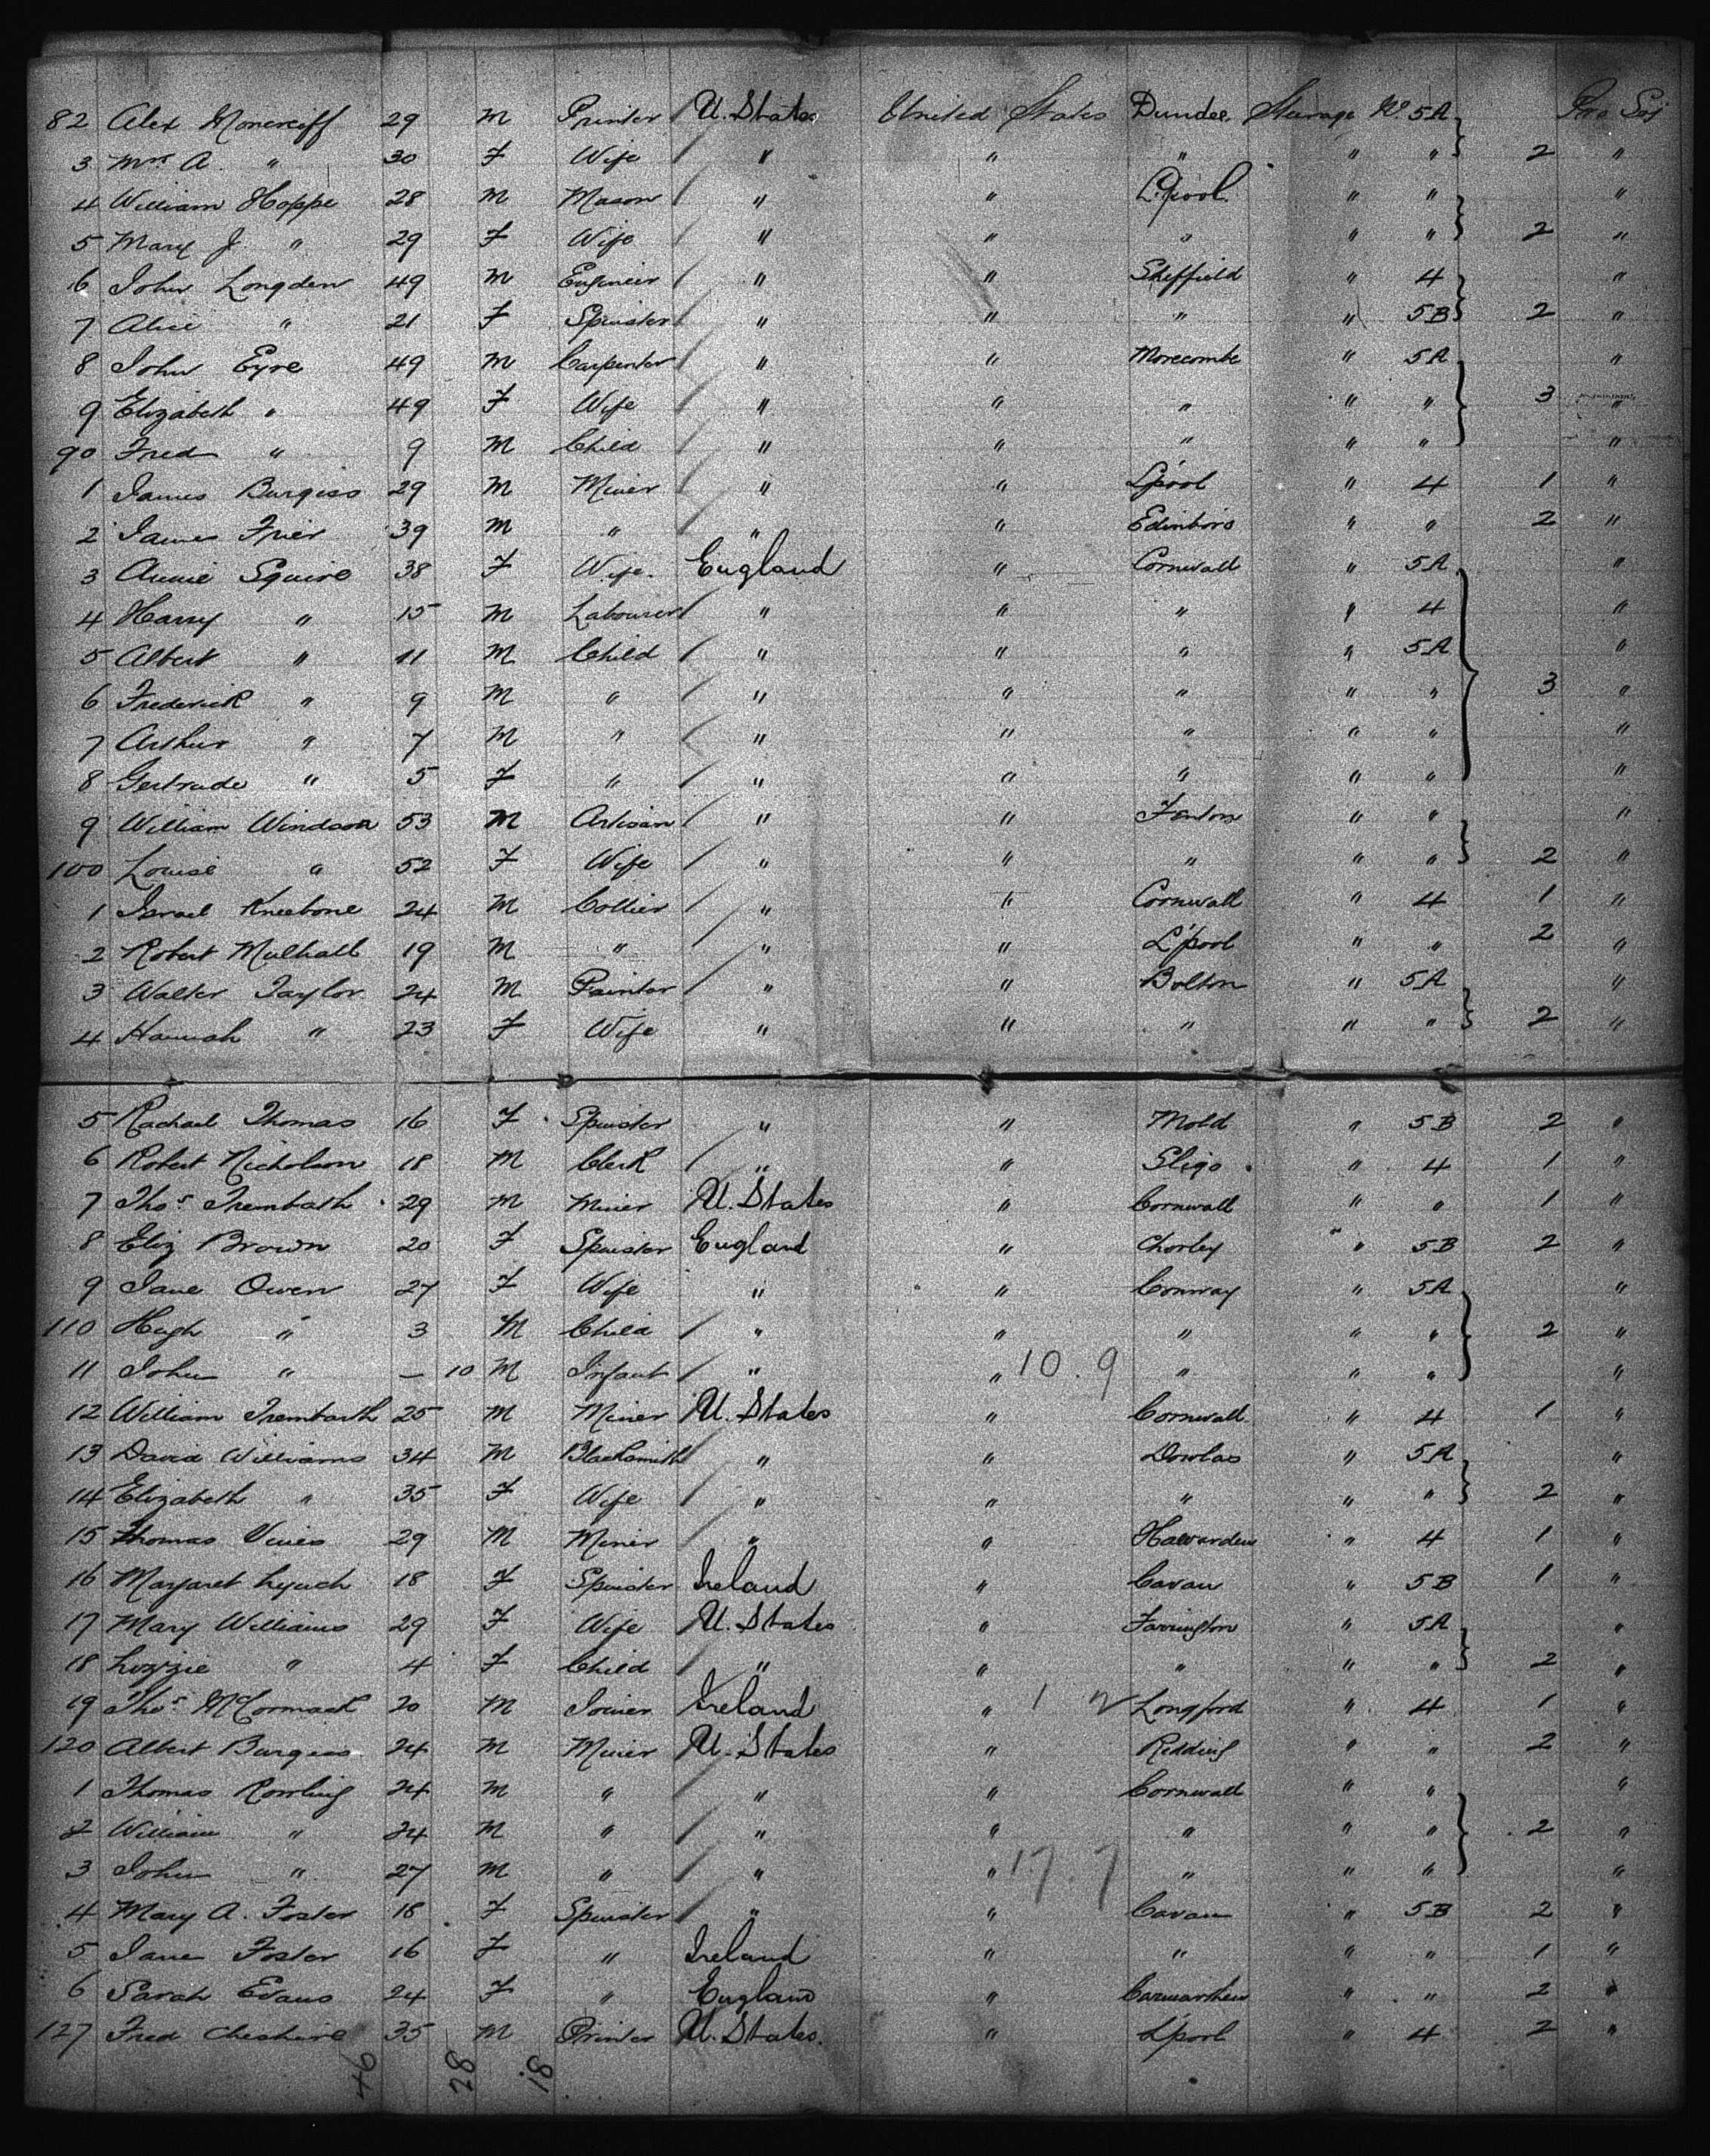 82 Alex Moncreiff 29 M Printer U. States United States Dundee Steerage No 5A Pro Soj
3 Mrs A. " 30 F Wife " " " " " 2 "
4 William Hoppe 28 M Mason " L'pool " " "
5 Mary J " 29 F Wife " " " " " 2 "
6 John Longden 49 M Engineer " " Sheffield " 4 "
7 Alice " 21 F Spinster " " " " 5B 2 "
8 John Eyre 49 M Carpenter " " Morecombe " 5A "
9 Elizabeth " 49 F Wife " " " " " 3 "
90 Fred " 9 M Child " " " " " "
1 James Burgess 29 M Miner " " L'pool " 4 1 "
2 James Frier 39 M " " " Edinboro " " 2 "
3 Annie Squire 38 F Wife. England " Cornwall " 5A "
4 Harry " 15 M Labourer " " " " 4 "
5 Albert " 11 M Child " " " " 5A "
6 Frederick " 9 M " " " " " " 3 "
7 Arthur " 7 M " " " " " " "
8 Gertrude " 5 F " " " " " " "
9 William Windsor 53 M Artisan " " Fenton " " "
100 Louise " 52 F Wife " " " " " 2 "
1 Israel Kneebone 24 M Collier " " Cornwall " 4 1 "
2 Robert Mulhall 19 M " " " L'pool " " 2 "
3 Walter Taylor 24 M Painter " " Bolton " 5A "
4 Hannah " 23 F Wife " " " " " 2 "
5 Rachael Thomas 16 F Spinster " " Mold " 5B 2 "
6 Robert Nicholson 18 M Clerk " " Sligo " 4 1 "
7 Thos Trembath 29 M Miner U. States " Cornwall " " 1 "
8 Eliz Brown 20 F Spinster England " Chorley " 5B 2 "
9 Jane Owen 27 F Wife " " Conway " 5A "
110 Hugh " 3 M Child " " " " " 2 "
11 John " — 10 M Infant " " 10.9 " " " "
12 William Trembath 25 M Miner U. States " Cornwall " 4 1 "
13 David Williams 34 M Blacksmith " " Dowlas " 5A "
14 Elizabeth " 35 F Wife " " " " " 2 "
15 Thomas 29 M Miner " " Hawarden " 4 1 "
16 Margaret Lynch 18 F Spinster Ireland " Cavan " 5B 1 "
17 Mary Williams 29 F Wife U. States " Farrington " 5A "
18 Lizzie " 4 F Child " " " " " 2 "
19 Thos McCormack 20 M Joiner Ireland " 1 Longford " 4 1 "
120 Albert Burgess 24 M Miner U. States " Redding " " 2 "
1 Thomas Rowling 24 M " " " Cornwall " " "
2 William " 24 M " " " " " " 2 "
3 John " 27 M " " " 17.7 " " " "
4 Mary A. Foster 18 F Spinster " " Cavan " 5B 2 "
5 Jane Foster 16 F " Ireland " " " " 1 "
6 Sarah Evans 24 F " England " Carmarthen " " 2 "
127 Fred Cheshire 35 M Printer U. States. " L'pool " 4 2 "
46 28 18